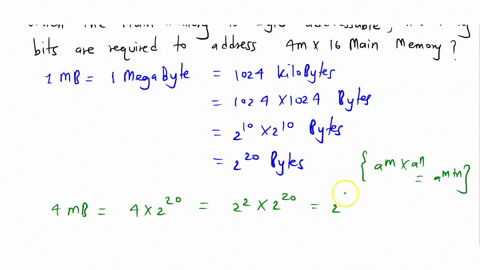 which the Main Memory is Byte addressable, how many
bits are required to address 4M X 16 Main Memory?
1 MB = 1 MegaByte = 1024 kiloBytes
= 1024 X 1024 Bytes
= 2^10 X 2^10 Bytes
= 2^20 Bytes
{ a^m X a^n
= a^m+n }
4 MB = 4 X 2^20 = 2^2 X 2^20 = 2